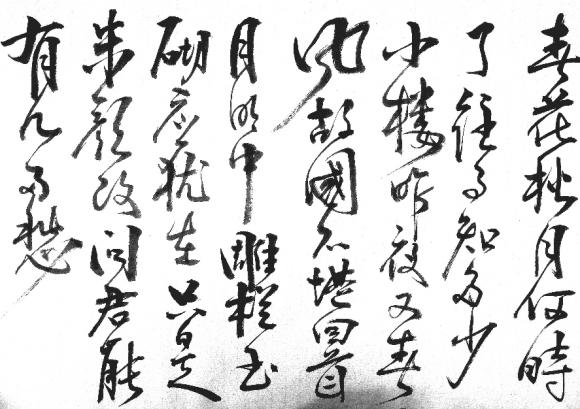 春花秋月何時
了往事知多少
小樓昨夜又春
风故國不堪回首
月明中雕栏玉
砌应犹在只是
朱颜改问君能
有几多愁